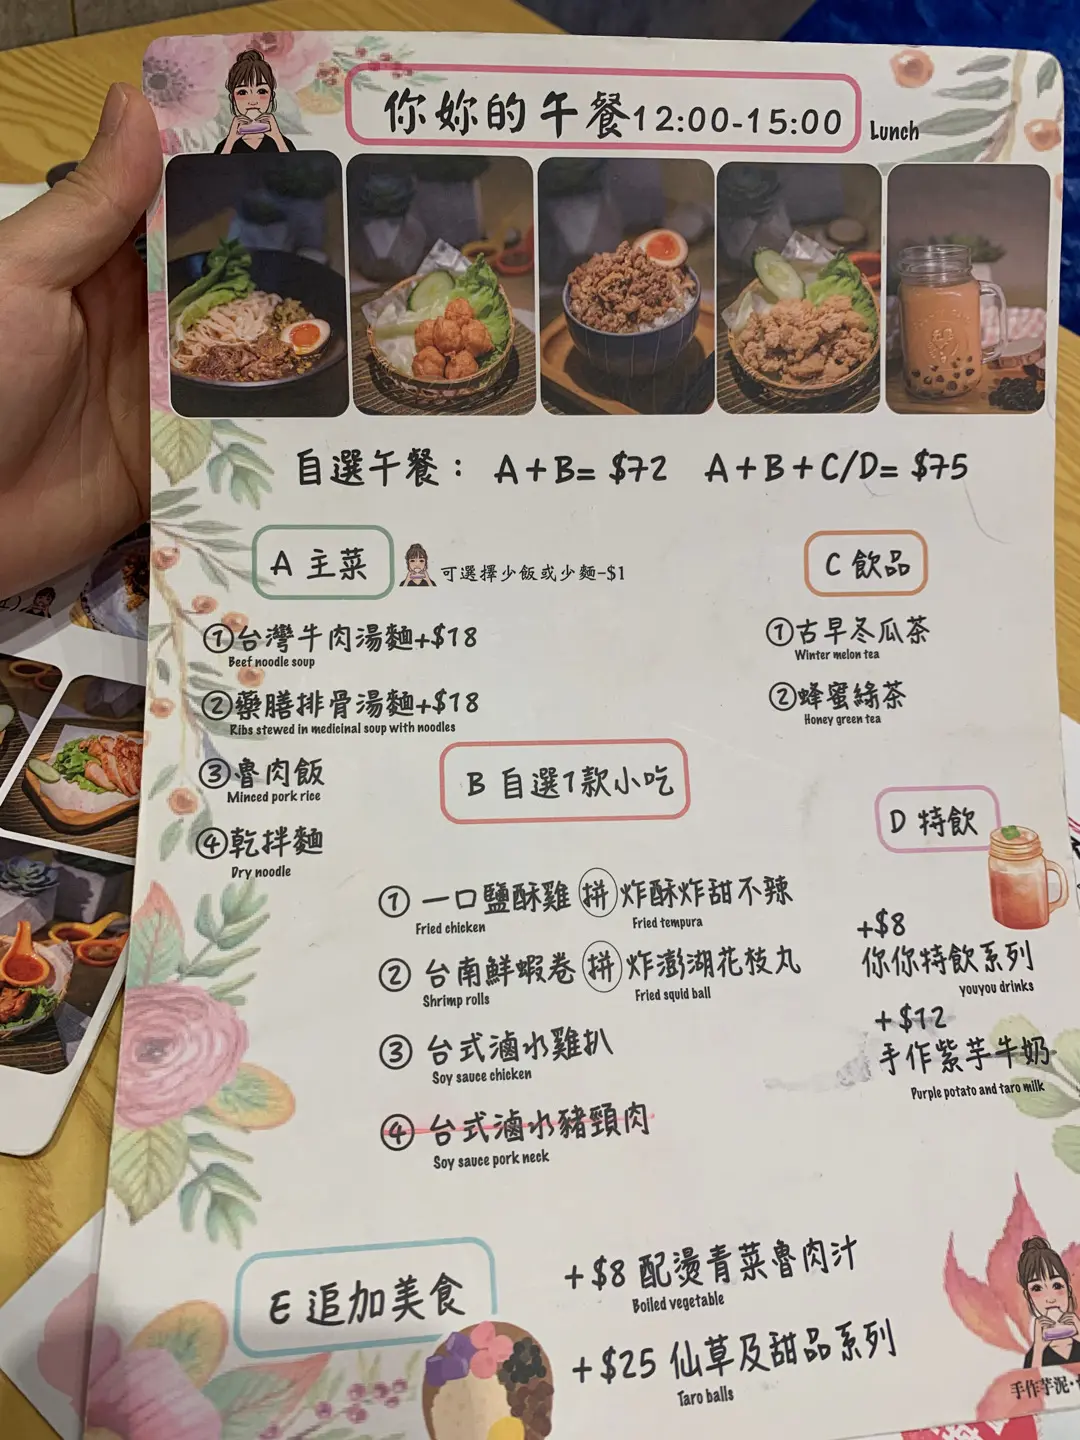 你妳的午餐12:00-15:00 Lunch
自選午餐： A+B= $72 A+B+C/D= $75
A 主菜 可選擇少飯或少麵-$1
①台灣牛肉湯麵+$18
Beef noodle soup
②藥膳排骨湯麵+$18
Ribs stewed in medicinal soup with noodles
③魯肉飯
Minced pork rice
④乾拌麵
Dry noodle
C 飲品
①古早冬瓜茶
Winter melon tea
②蜂蜜綠茶
Honey green tea
B 自選1款小吃
① 一口鹽酥雞 拼 炸酥炸甜不辣
Fried chicken Fried tempura
② 台南鮮蝦卷 拼 炸澎湖花枝丸
Shrimp rolls Fried squid ball
③ 台式滷水雞扒
Soy sauce chicken
④ 台式滷水豬頸肉
Soy sauce pork neck
D 特飲
+$8
你你特飲系列
youyou drinks
+$12
手作紫芋牛奶
Purple potato and taro milk
E 追加美食
+$8 配燙青菜魯肉汁
Boiled vegetable
+$25 仙草及甜品系列
Taro balls
手作芋泥·